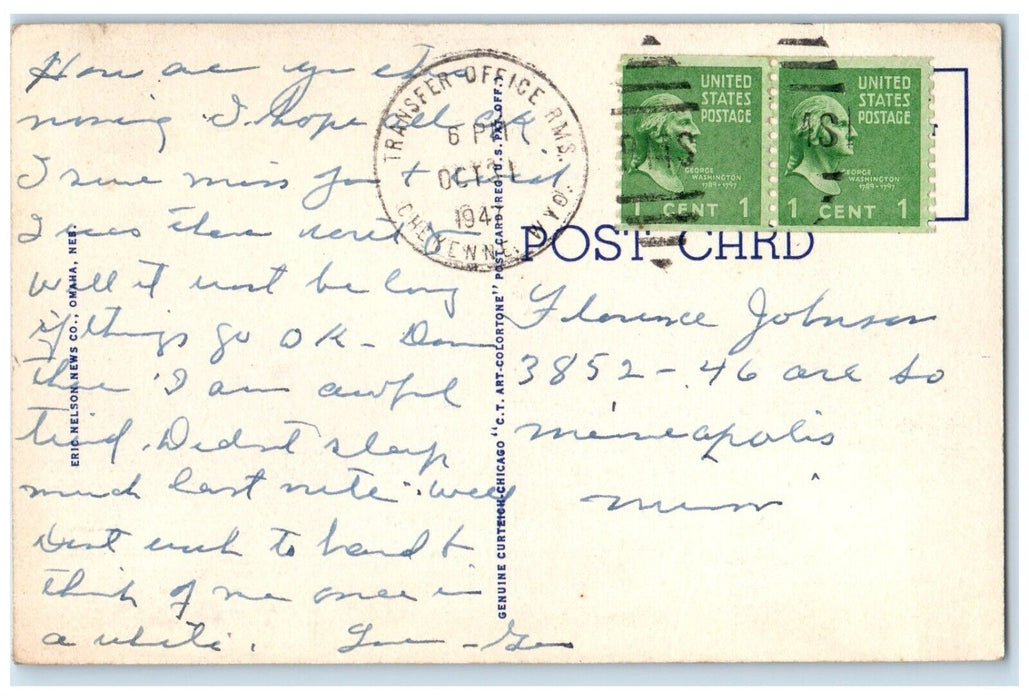 How are you this
morning I hope all OK
I sure miss you &
I was there next to
Well it wont be long
if things go OK -
there I am awful
tired. Didnt sleep
much last nite. Well
Dont work to hard &
think of me once in
a while. Love - Geo
ERIC NELSON NEWS CO., OMAHA, NEB.
TRANSFER OFFICE RMS.
6 PM
OCT
194
CHEYENNE, WYO.
GENUINE CURTEICH-CHICAGO "C.T. ART-COLORTONE" POST CARD (REG. U.S. PAT. OFF.)
UNITED STATES POSTAGE
GEORGE WASHINGTON
1789-1797
1 CENT 1
UNITED STATES POSTAGE
GEORGE WASHINGTON
1789-1797
1 CENT 1
RMS
POST CARD
Florence Johnson
3852 - 46 ave So
Minneapolis
Minn